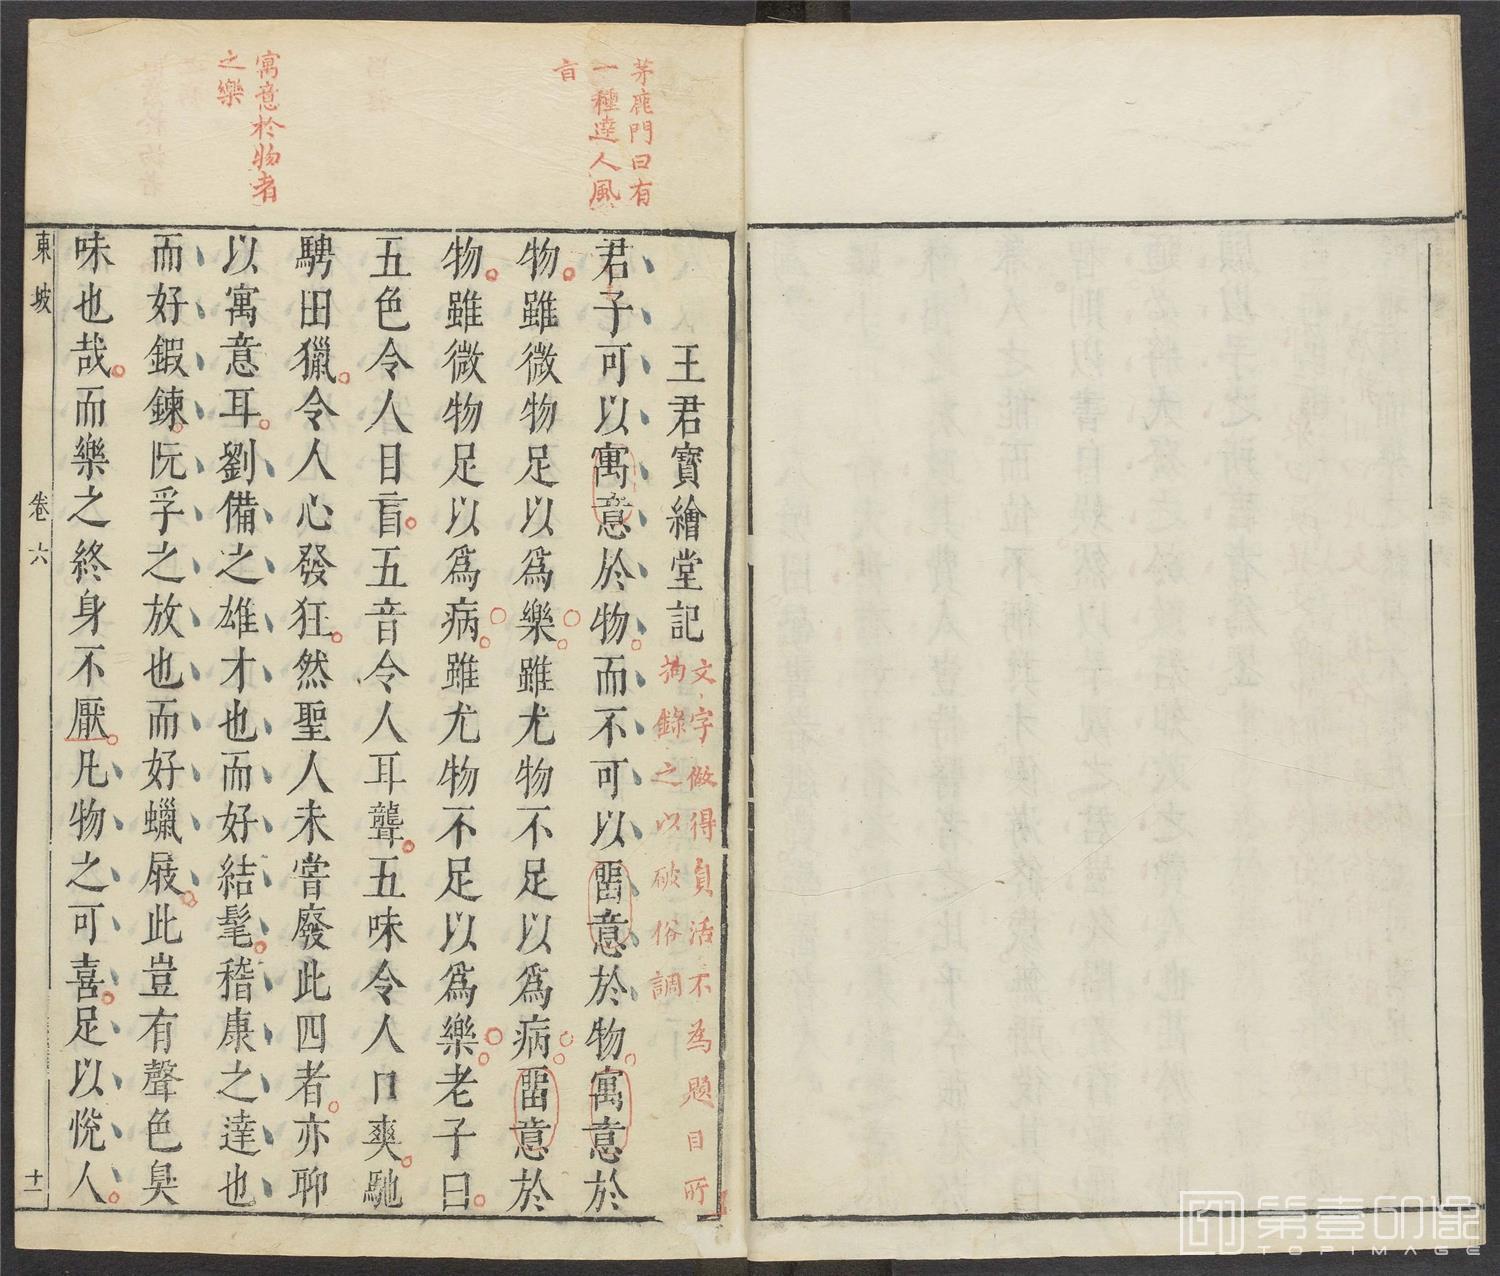 茅鹿門曰有
一種達人風
旨
寓意於物者
之樂
王君寶繪堂記
文字做得負活不為題目所
拘錄之以破俗調
君子可以寓意於物而不可以畱意於物寓意於
物雖微物足以爲樂雖尤物不足以爲病畱意於
物雖微物足以爲病雖尤物不足以爲樂老子曰
五色令人目盲五音令人耳聾五味令人口爽馳
騁田獵令人心發狂然聖人未嘗廢此四者亦聊
以寓意耳劉備之雄才也而好結髦嵇康之達也
而好鍛鍊阮孚之放也而好蠟屐此豈有聲色臭
味也哉而樂之終身不厭凡物之可喜足以悅人
東坡
卷六
十一
第壹印像
TOPIMAGE